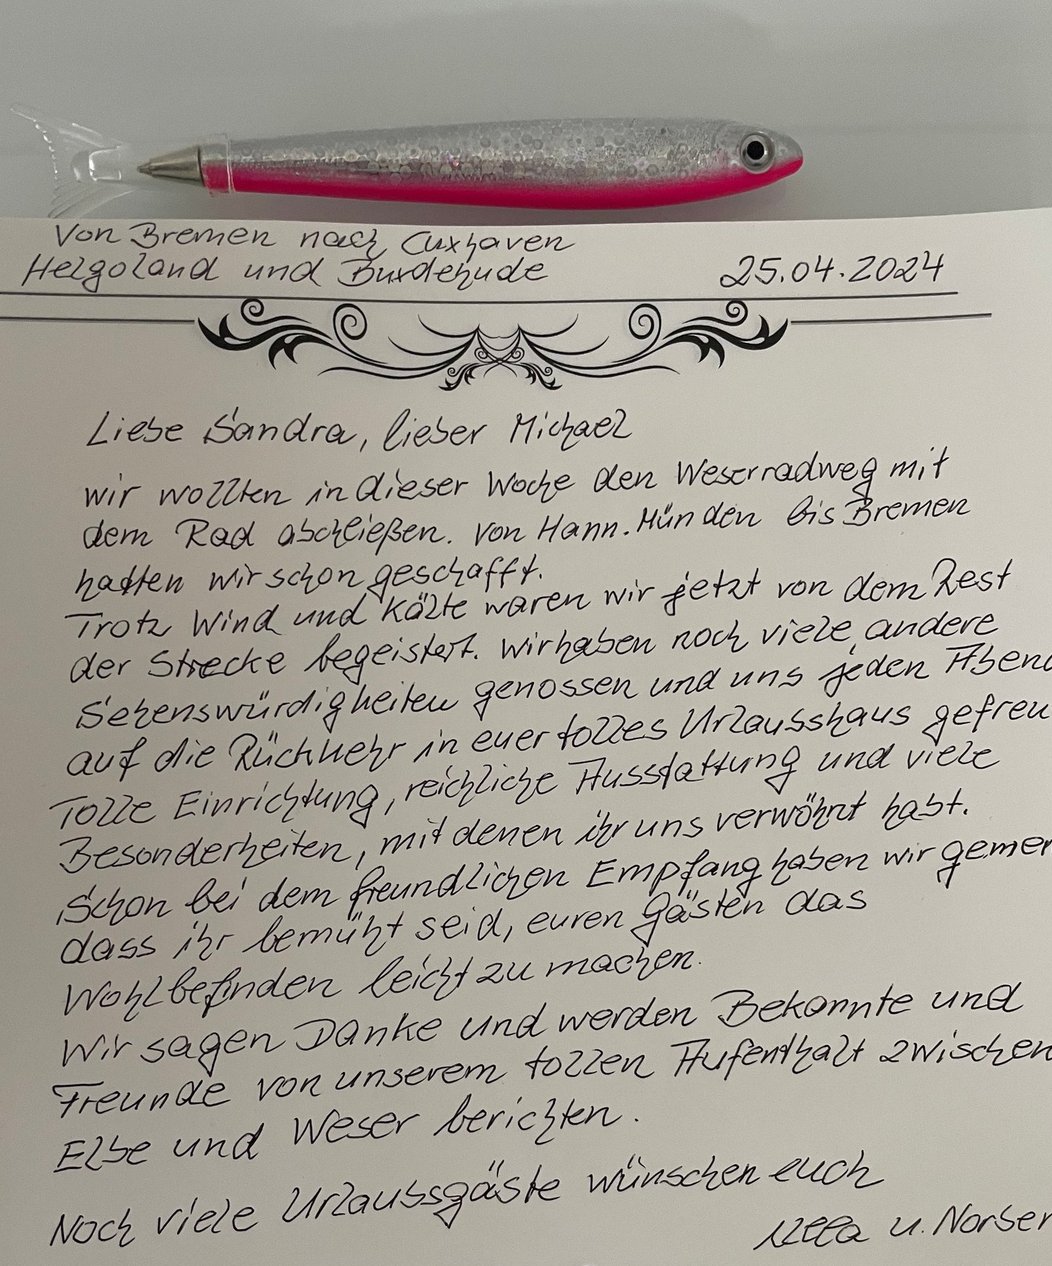 Von Bremen nach Cuxhaven
Helgoland und Buxdehude 25.04.2024
Liebe Sandra, lieber Michael
wir wollten in dieser Woche den Weserradweg mit
dem Rad abschließen. Von Hann. Münden bis Bremen
hatten wir schon geschafft.
Trotz Wind und Kälte waren wir jetzt von dem Rest
der Strecke begeistert. Wir haben noch viele andere
Sehenswürdigkeiten genossen und uns jeden Abend
auf die Rückkehr in euer tolles Urlaubshaus gefreu
Tolle Einrichtung, reichliche Ausstattung und viele
Besonderheiten, mit denen ihr uns verwöhnt habt.
Schon bei dem freundlichen Empfang haben wir gemer
dass ihr bemüht seid, euren Gästen das
Wohlbefinden leicht zu machen.
Wir sagen Danke und werden Bekannte und
Freunde von unserem tollen Aufenthalt zwischen
Elbe und Weser berichten.
Noch viele Urlaubsgäste wünschen euch
u. Norber